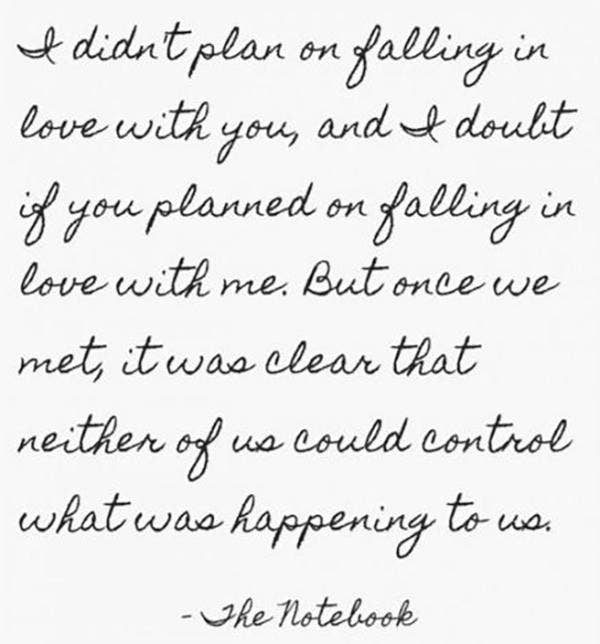 I didn't plan on falling in
love with you, and I doubt
if you planned on falling in
love with me. But once we
met, it was clear that
neither of us could control
what was happening to us.
- The Notebook